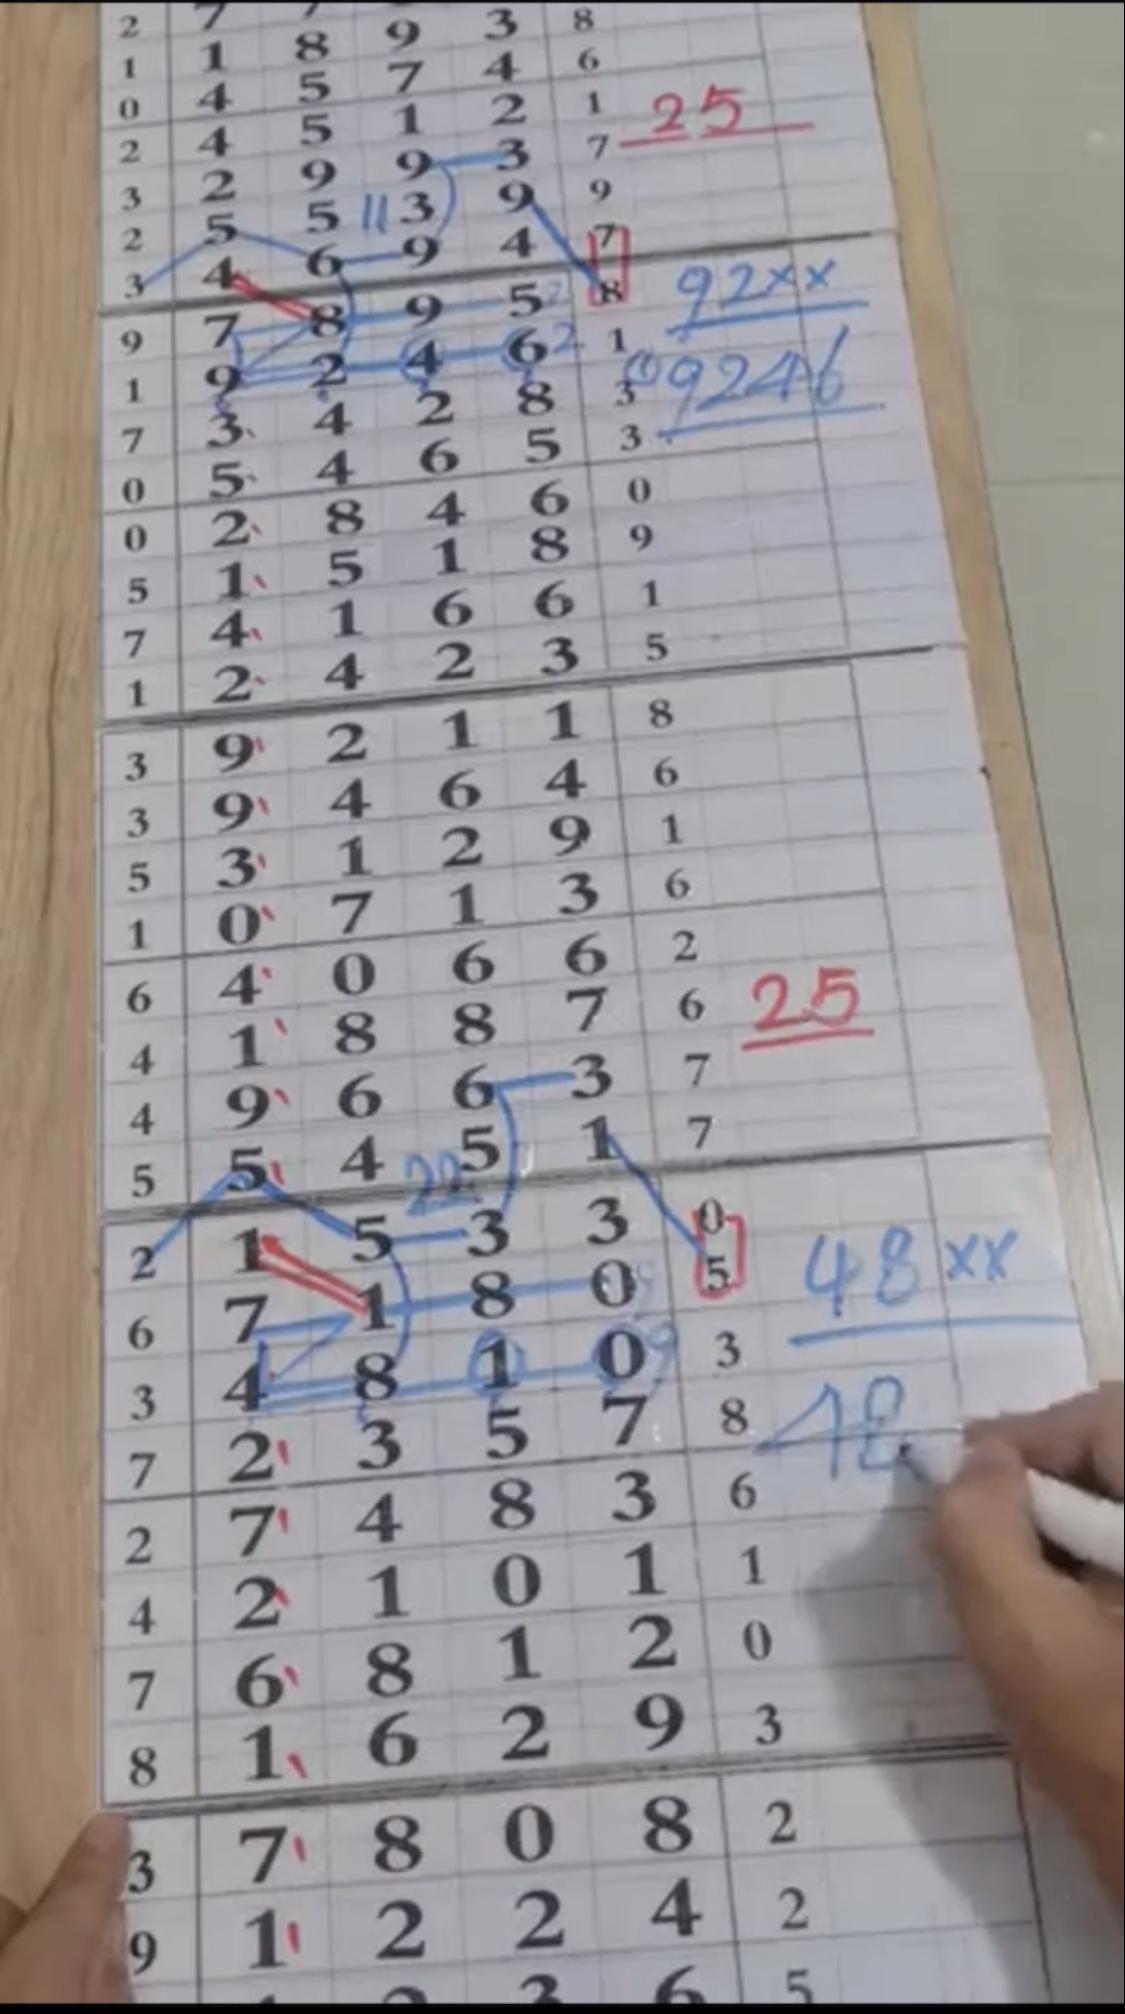 2 7 7
1 1 8 9 3 8
0 4 5 7 4 6
2 4 5 1 2 1 25
3 2 9 9 3 7
2 5 5 11 3 9 9
3 4 6 9 4 7
9 7 8 9 5 8 92xx
1 9 2 4 6 2 1
7 3 4 2 8 3 (1) 9246
0 5 4 6 5 3
0 2 8 4 6 0
5 1 5 1 8 9
7 4 1 6 6 1
1 2 4 2 3 5
3 9 2 1 1 8
3 9 4 6 4 6
5 3 1 2 9 1
1 0 7 1 3 6
6 4 0 6 6 2
4 1 8 8 7 6 25
4 9 6 6 3 7
5 5 4 22 5 1 7
2 1 5 3 3 0
6 7 1 8 0 5 48xx
3 4 8 1 0 9 3
7 2 3 5 7 8 48
2 7 4 8 3 6
4 2 1 0 1 1
7 6 8 1 2 0
8 1 6 2 9 3
3 7 8 0 8 2
9 1 2 2 4 2
3 6 5